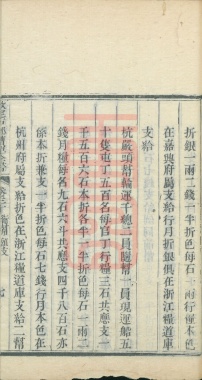 折銀一兩二錢一半折色每石一兩行糧本色
在嘉興府屬支給行月折銀俱在浙江糧道庫
支給
杭嚴頭幫輪運千總二員隨幫一員現運船五
十隻屯丁五百名每官丁行糧三石共應支一
千五百六石本折各半一半折色每石一兩二
錢月糧每名九石六斗共應支四千八百石亦
係本折兼支一半折色每石七錢行月本色在
杭州府屬支給折色在浙江糧道庫支給二幫